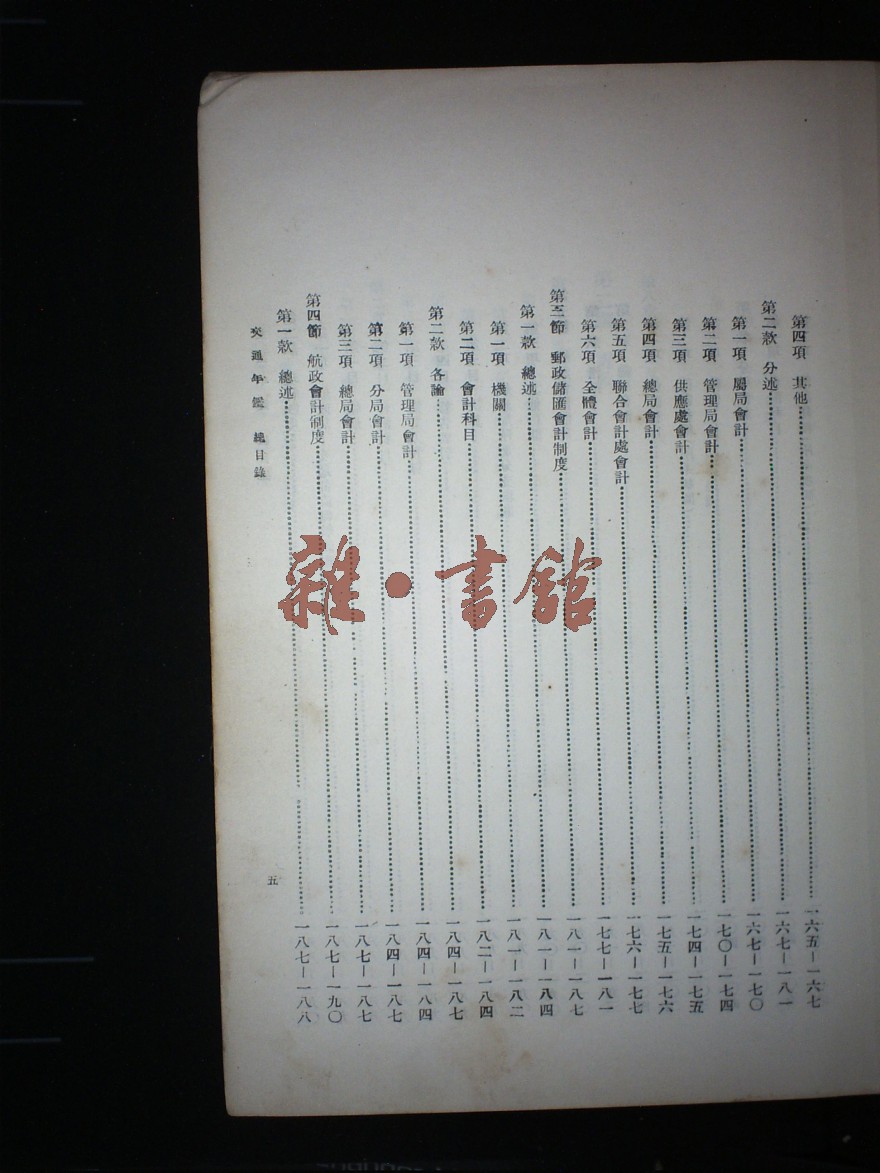 第四項　其他……一六五—一六七
第二款　分述……一六七—一八一
第一項　屬局會計……一六七—一七〇
第二項　管理局會計……一七〇—一七四
第三項　供應處會計……一七四—一七五
第四項　總局會計……一七五—一七六
第五項　聯合會計處會計……一七六—一七七
第六項　全體會計……一七七—一八一
第三節　郵政儲匯會計制度……一八一—一八七
第一款　總述……一八一—一八四
第一項　機關……一八一—一八二
第二項　會計科目……一八二—一八四
第二款　各論……一八四—一八七
第一項　管理局會計……一八四—一八四
第二項　分局會計……一八四—一八七
第三項　總局會計……一八七—一八七
第四節　航政會計制度……一八七—一九〇
第一款　總述……一八七—一八八
交通年鑑　總目錄
五
雜·書館